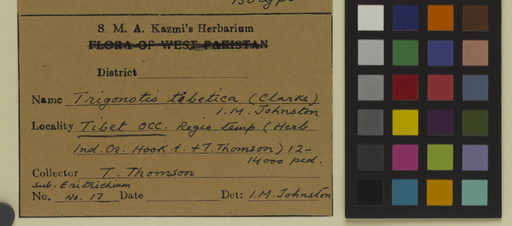 S. M. A. Kazmi's Herbarium
FLORA OF WEST PAKISTAN
District
Name Trigonotis tibetica (Clarke)
I.M. Johnston
Locality Tibet occ. Regio temp (Herb
Ind. Or. Hook. f. & T. Thomson) 12-
14000 ped.
Collector T. Thomson
sub. Eritrichium
No. No. 17 Date Det: I.M. Johnston